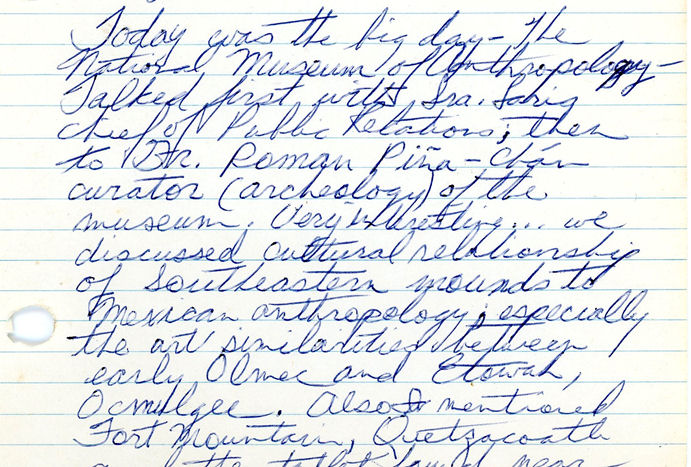 Today was the big day - The
National Museum of Anthropology -
Talked first with Sra. Sarig
chief of Public Relations; then
to Dr. Roman Piña-Chán
curator (archeology) of the
museum. Very interesting... we
discussed cultural relationship
of Southeastern mounds to
Mexican anthropology; especially
the art similarities between
early Olmec and Etowah,
Ocmulgee. Also mentioned
Fort Mountain, Quetzacoatle
the tablet found near